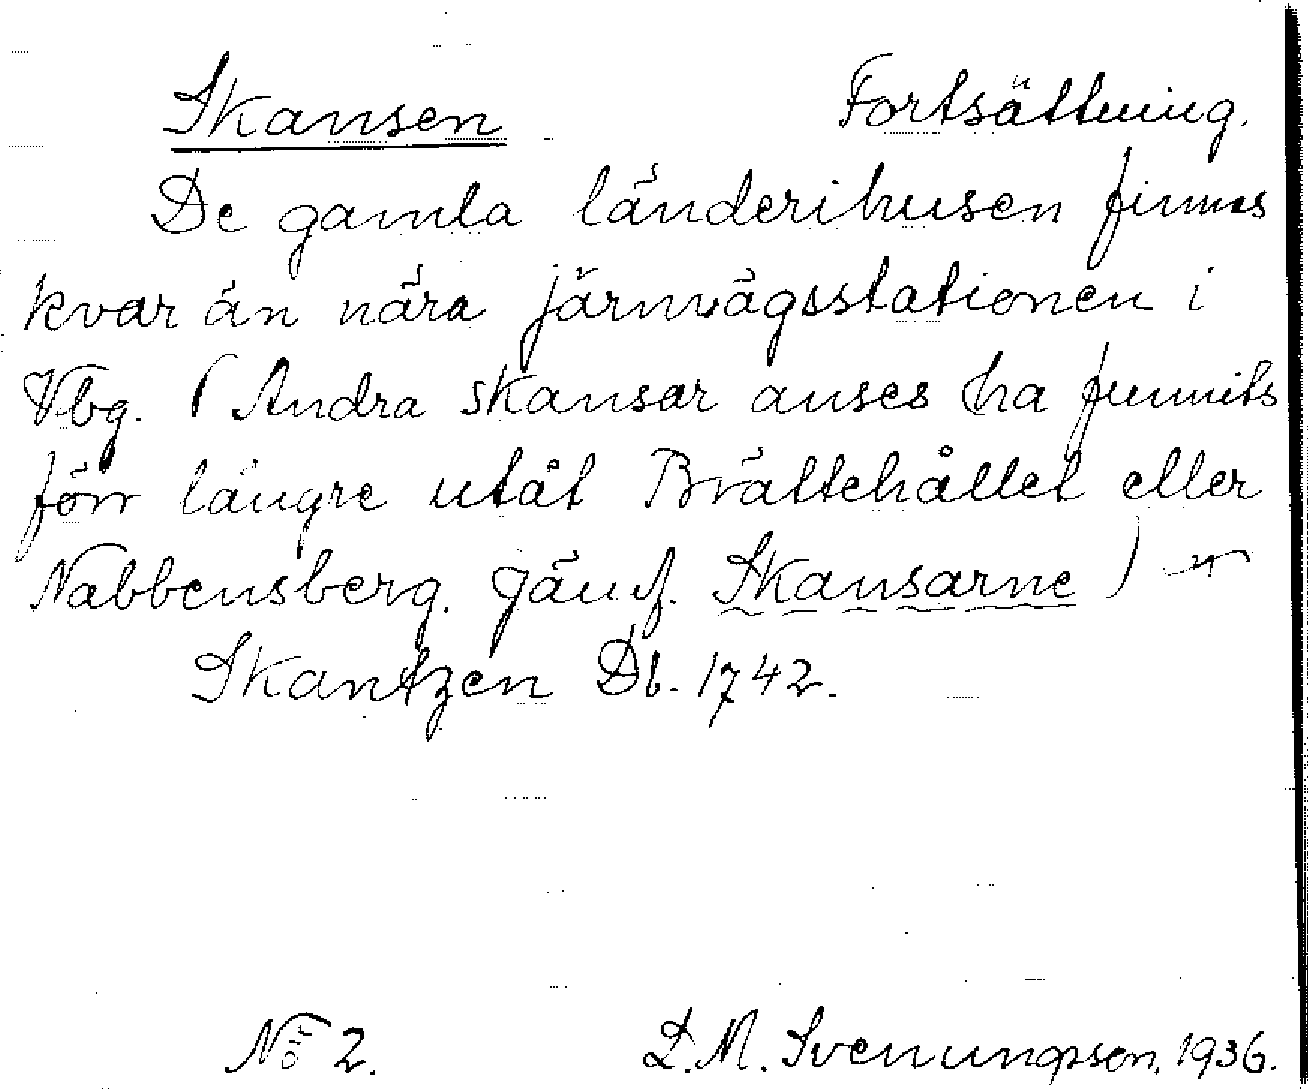 Skansen Fortsättning.
De gamla länderihusen finnes
kvar än nära järnvägsstationen i
Vbg. (Andra skansar anses ha funnits
förr längre utåt Brättehållet eller
Nabbensberg. Jämf. Skansarne)
Skantzen Db. 1742.
No 2. D.M. Svenungsson, 1936.